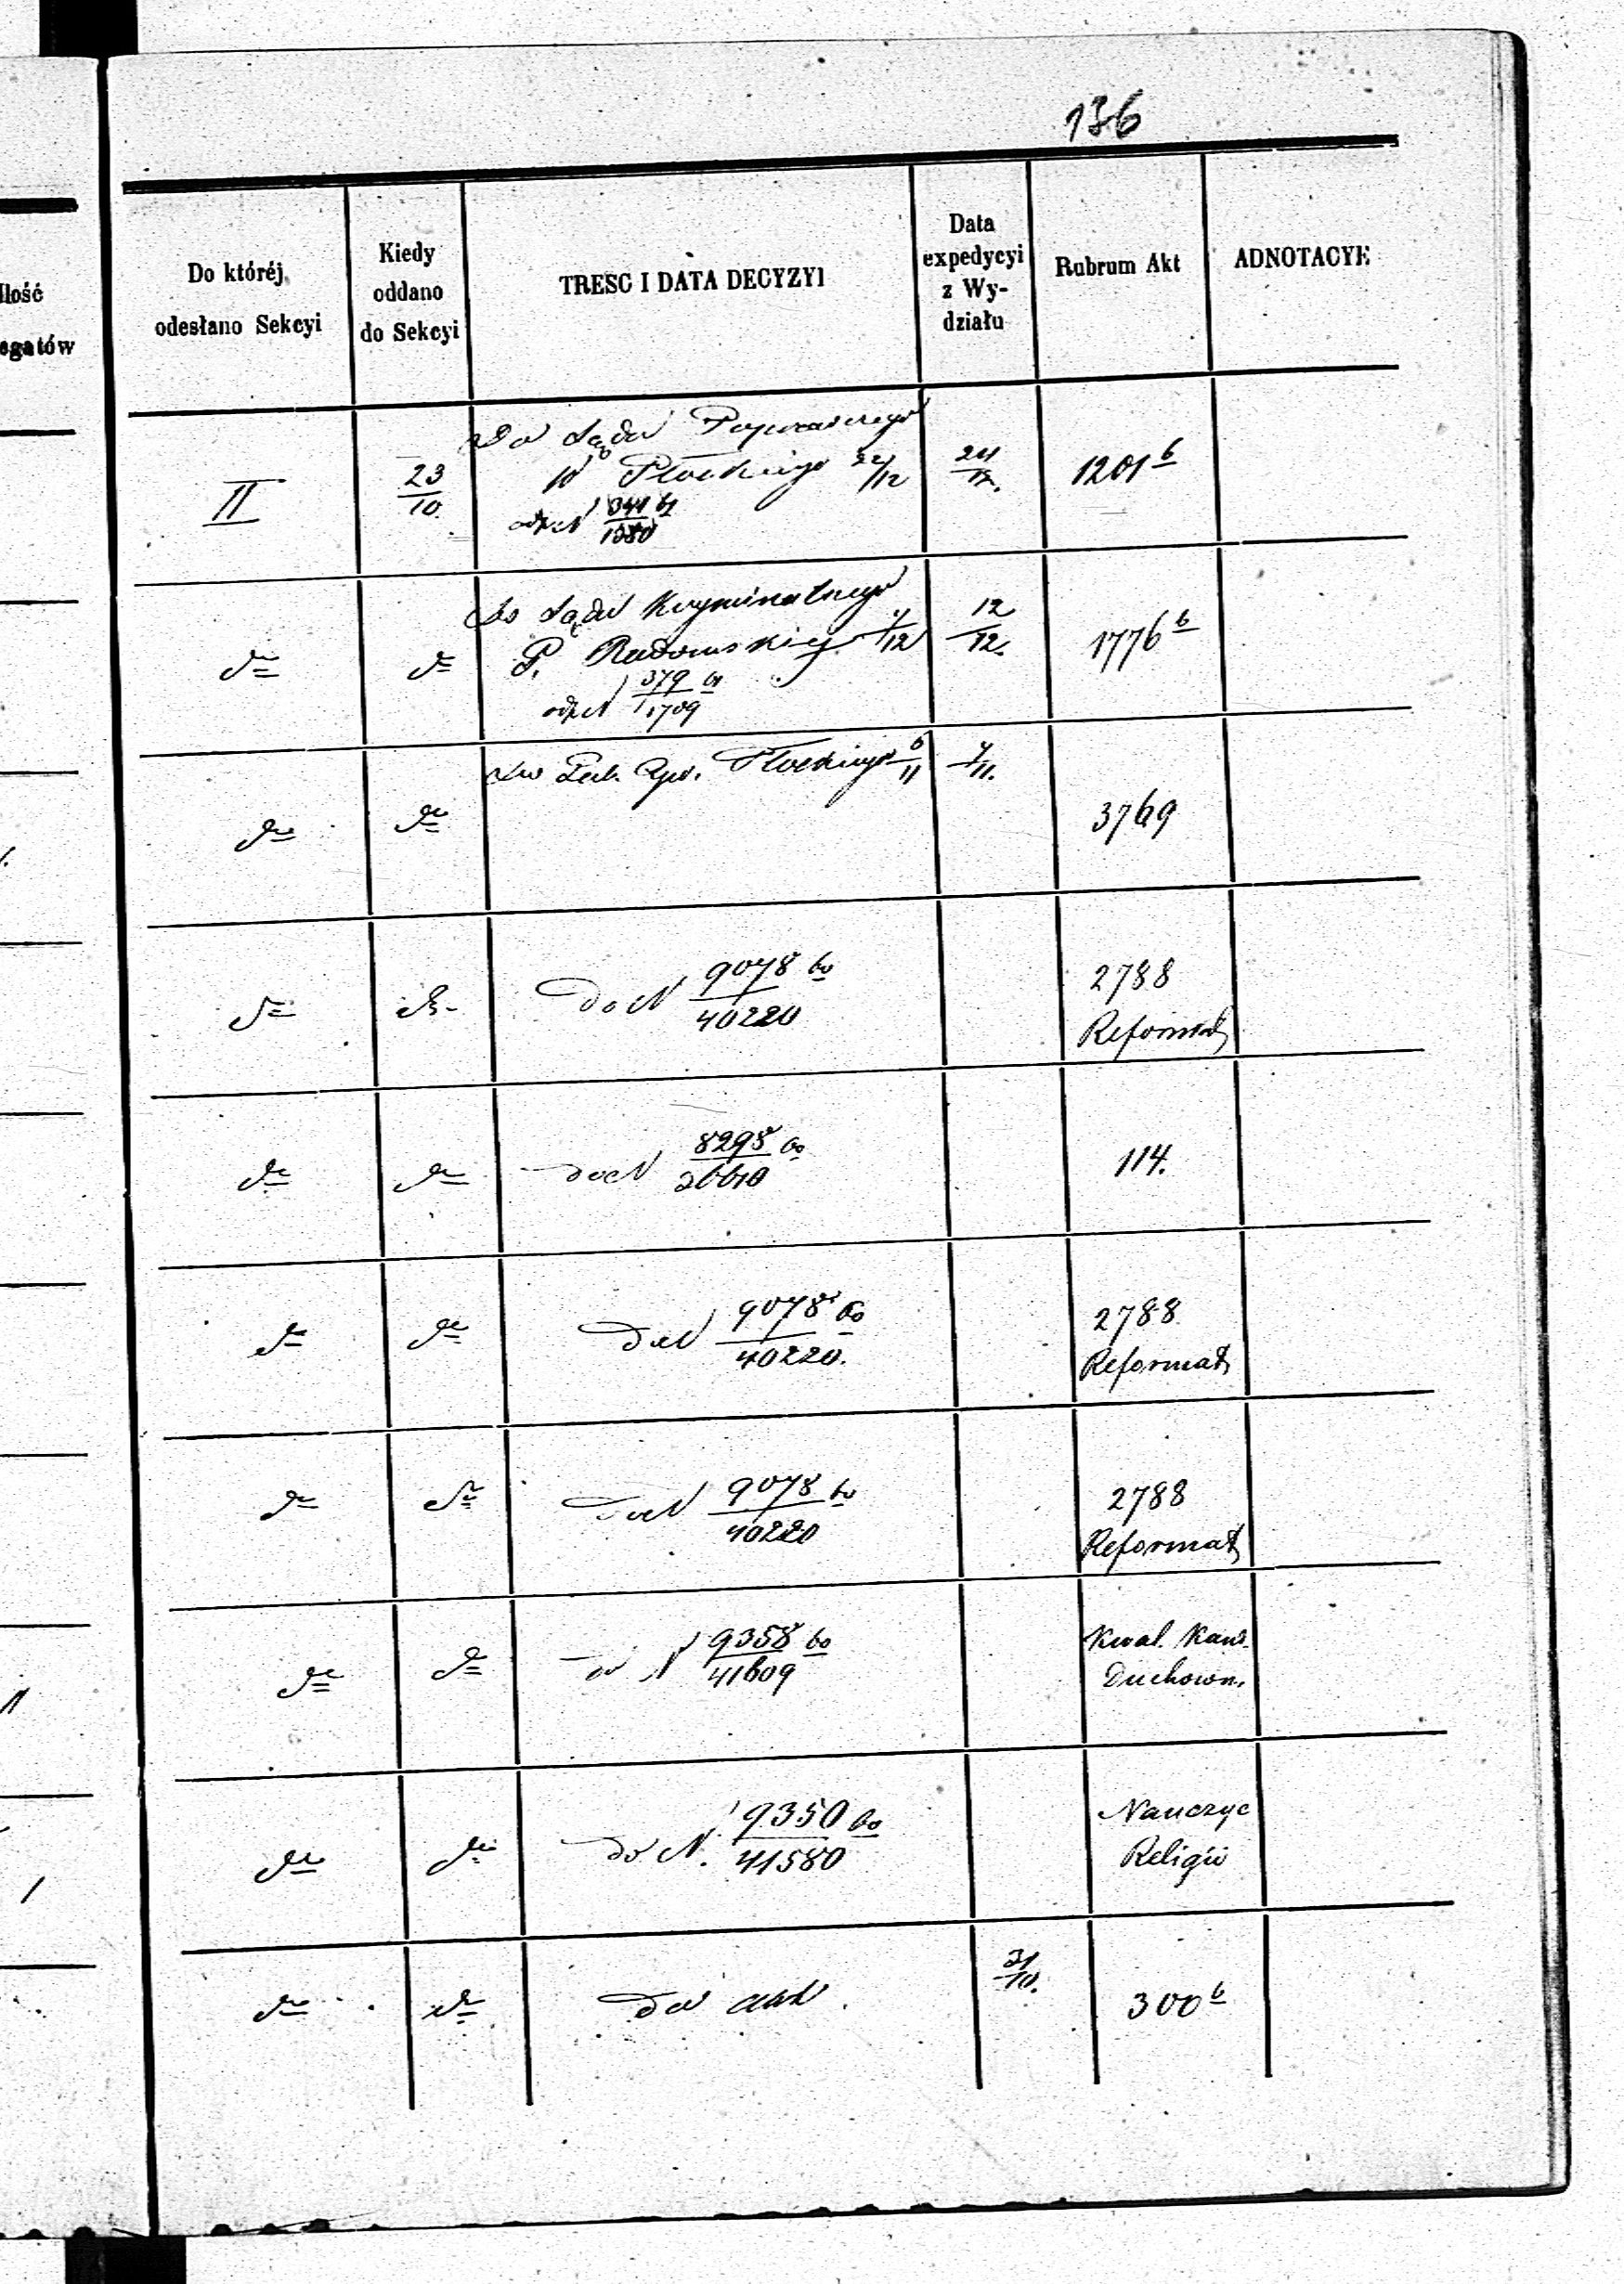 136
Ilość
egatów
Do któréj
odesłano Sekcyi
Kiedy
oddano
do Sekcyi
TRESC I DATA DECYZYI
Data
expedycyi
z Wy-
działu
Rubrum Akt
ADNOTACYE
II
23/10
Do Sądu Poprawczego
Płockiego 22/12
1380
24/12.
1201 b
do
do
Do Sądu Kryminalnego
P. Radomskiej /12
379/1709
12/12.
1776 b
do
do
Do Gub. Płockiego 6/11
7/11.
3769
do
do
Do N 9078/40220
2788
Reformat
do
do
do N 8298
114.
do
do
Do N 9078/40220.
2788
Reformat
do
do
Do N 9078/40220
2788
Reformat
do
do
do N 9358/41609
Kwal. Kand.
Duchown.
do
do
do N. 9350/41580
Nauczyc
Religii
do
do
Do akt
31/10.
300 b